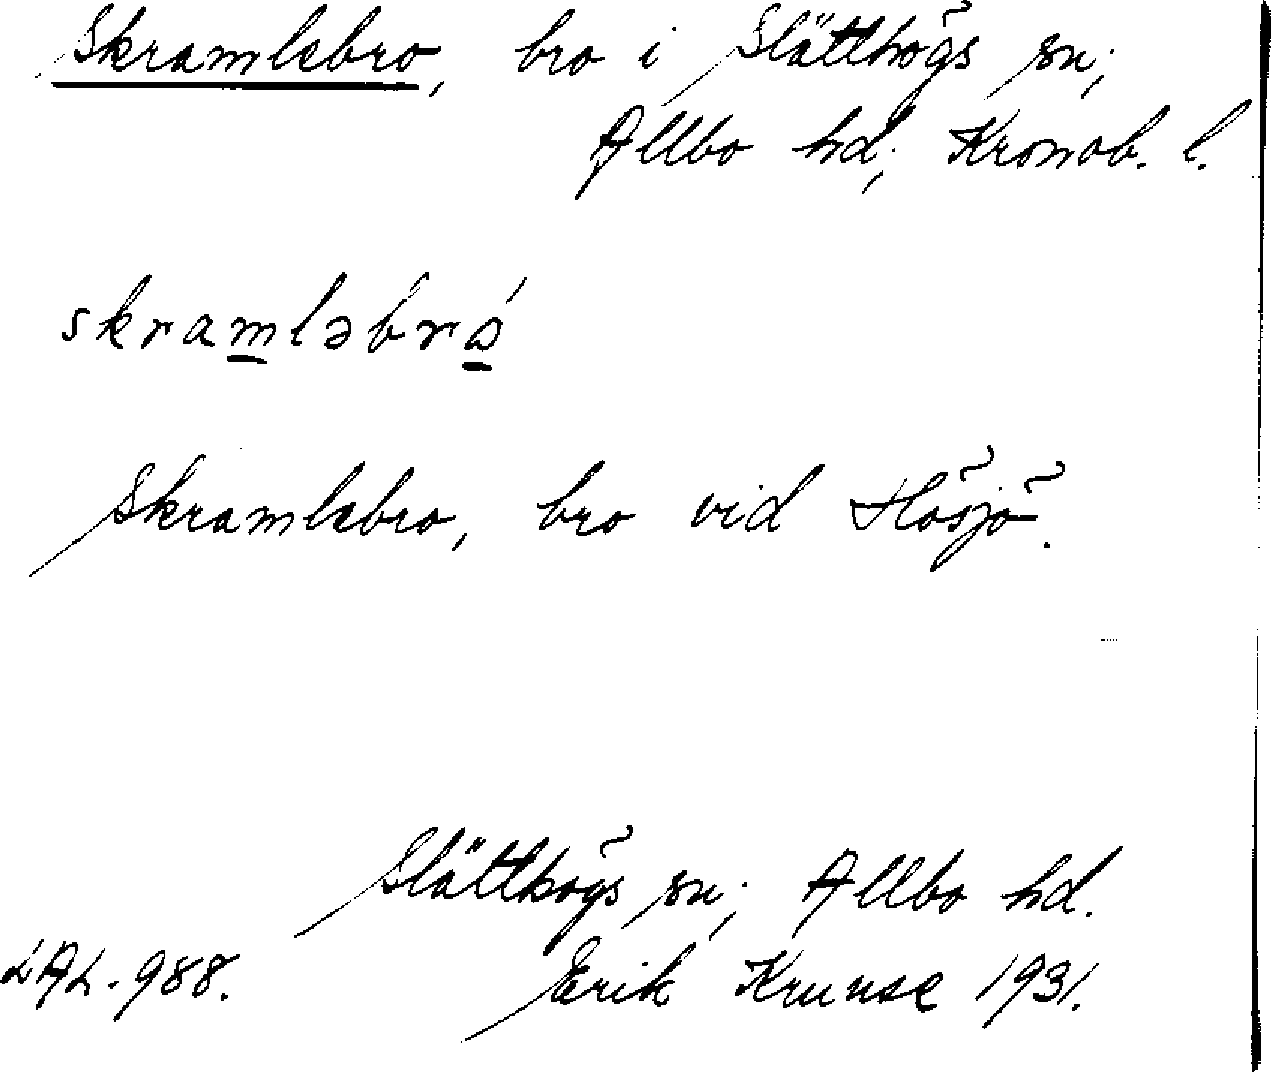 Skramlebro, bro i Slätthögs sn;
Allbo hd; Kronob. l.
skramləbró
Skramlebro, bro vid Hösjö.
Slätthögs sn; Allbo hd.
LAL. 988. Erik Kruuse 1931.